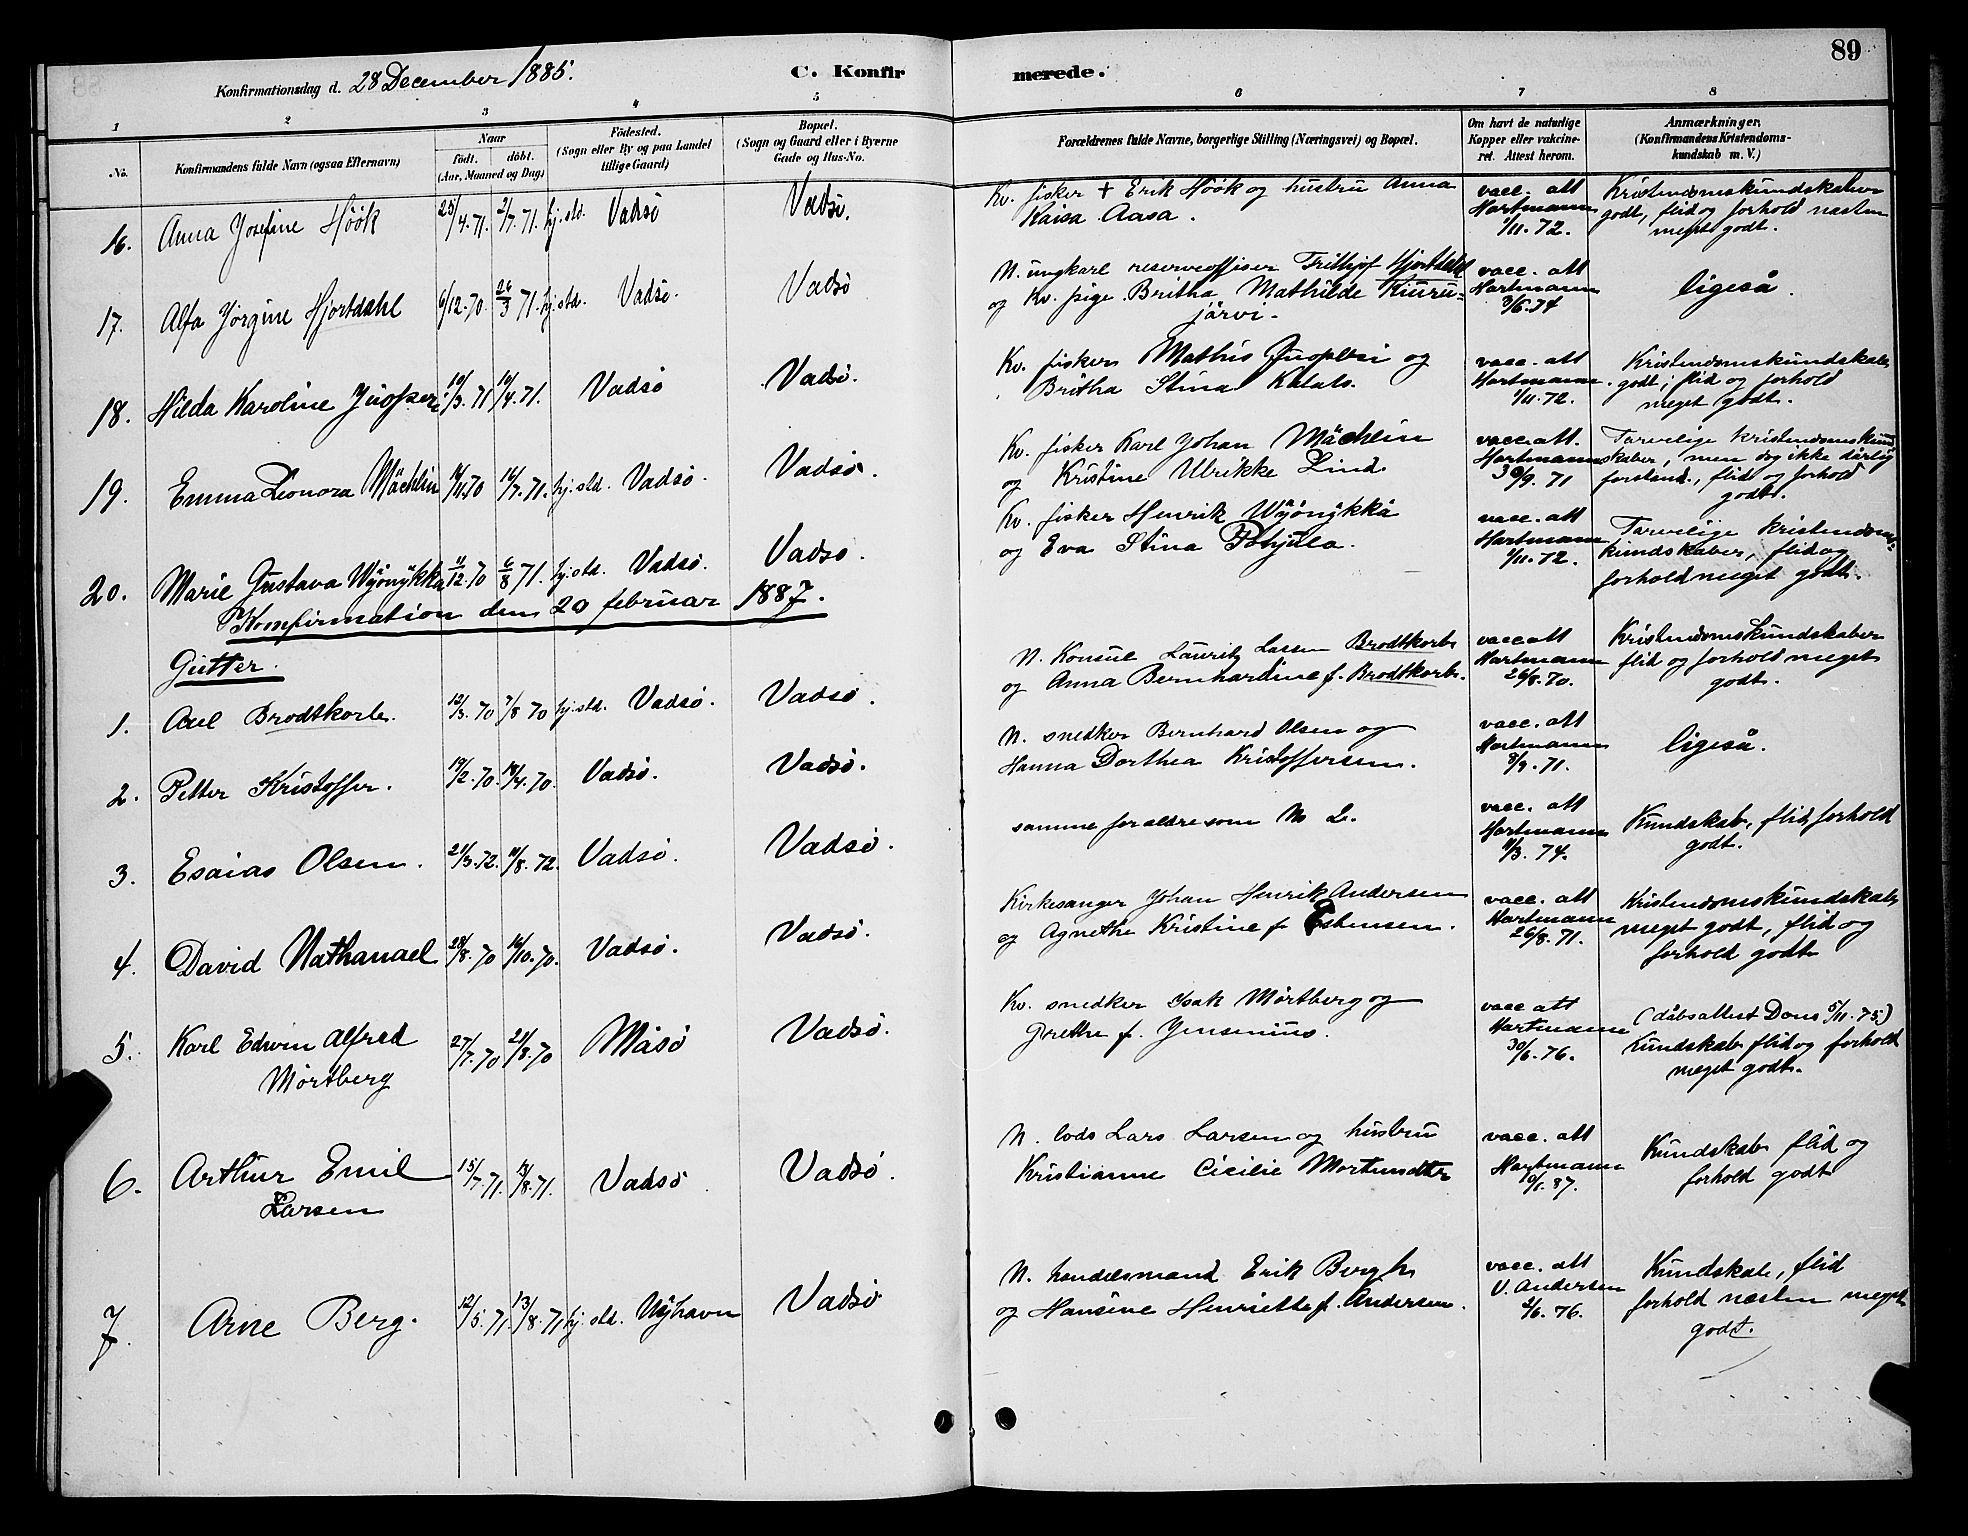 89
Konfirmationsdag d. 28 December 1885.
C. Konfirmerede.
1 2 3 4 5 6 7 8
No.
Konfirmandens fulde Navn (ogsaa Efternavn)
Naar
födt. döbt.
(Aar, Maaned og Dag)
Födested.
(Sogn eller By og paa Landet
tillige Gaard)
Bopæl.
(Sogn og Gaard eller i Byerne
Gade og Hus-No.
Forældrenes fulde Navne, borgerlige Stilling (Næringsvei) og Bopæl.
Om havt de naturlige
Kopper eller vakcine-
ret. Attest herom.
Anmærkninger,
(Konfirmandens Kristendoms-
kundskab m. V.)
16. Anna Josefine Höök 25/4.71. 2/7.71. hj.std. Vadsø Vadsø.
Kv. fisker + Erik Höök og hustru Anna
Kaisa Aasa.
vacc. att
Hartmann
1/11. 72.
Kristendomskundskaber
godt, flid og forhold næsten
meget godt.
17. Alfa Jørgine Hjortdahl 6/12.70. 26/3 71. hj.std. Vadsø. Vadsø
N. ungkarl reserveoffiser Frithjof Hjortdahl
og Kv. pige Britha Mathilde Kiuru-
järvi.
vacc. att
Hartmann
3/6.74
ligeså.
18. Hilda Karoline Juopperi 10/3.71 10/4.71. Vadsø Vadsø.
Kv. fisker Mathis Juopperi og
Britha Stina Kalalo.
vacc. att
Hartmann
1/11. 72.
Kristendomskundskab
godt; flid og forhold
meget godt.
19. Emma Leonora Mächlin 14/11.70 16/7.71. hj.std. Vadsø. Vadsø.
Kv. fisker Karl Johan Mächlin
og Kristine Ulrikke Lind.
vacc. att.
Hartmann
30/9. 71
Tarvelige kristendomskund-
skaber, men dog ikke dårlig
forstand., flid og forhold
godt.
20. Marie Gustava Wyönykkä 11/12.70 6/8 71. hj.std. Vadsø. Vadsø.
Kv. fisker Henrik Wyönykkä
og Eva Stina Pohjula.
vacc. att
Hartmann
1/11. 72.
Tarvelige Kristendoms-
kundskaber, flid og
forhold meget godt.
Konfirmation den 20 februar 1887.
Gutter.
1. Axel Brodtkorb. 12/3.70 7/8 70 hj.std. Vadsø. Vadsø.
N. Konsul Lauritz Lassen Brodtkorb
og Anna Bernhardine f. Brodtkorb.
vacc. att
Hartmann
26/8. 70.
Kristendomskundskaber
flid og forhold meget
godt.
2. Petter Kristoffer. 19/2.70. 18/4.70. Vadsø. Vadsø.
N. snedker Bernhard Olsen og
Hanna Dorthea Kristoffersen.
vacc. att
Hartmann
8/9. 71.
ligeså.
3. Esaias Olsen. 21/3.72. 11/8.72. Vadsø. Vadsø.
samme forældre som No 2.
vacc. att
Hartmann
11/3. 74.
Kundskab, flid, forhold
godt.
4. David Nathanael 28/8.70 16/10.70. Vadsø. Vadsø.
Kirkesanger Johan Henrik Andersen
og Agnethe Kristine f. Estensen.
vacc. att
Hartmann
26/8. 71.
Kristendomskundskab
meget godt, flid og
forhold godt
5. Karl Edwin Alfred 27/7.70 21/8.70 Måsø Vadsø.
Mørtberg
Kv. snedker Isak Mørtberg og
Grethe f. Jensenius.
vacc att
Hartmann
30/6. 76.
(dåbsattest Dons 5/11. 75)
Kundskab flid og forhold
meget godt.
6. Arthur Emil 15/7.71. 13/8.71. Vadsø Vadsø.
Larsen
N. lods Lars Larsen og hustru
Kristianne Cicilie Mortensdtr
vacc. att
Hartmann
10/1. 87.
Kundskab flid og
forhold godt
7. Arne Berg. 12/5.71. 13/8.71. hj. std. Nyhavn Vadsø
N. handelsmand Erik Bergh
og Hansine Henriette f. Andersen.
vacc. att
V. Andersen
2/6. 76.
Kundskab, flid
forhold næsten meget
godt.